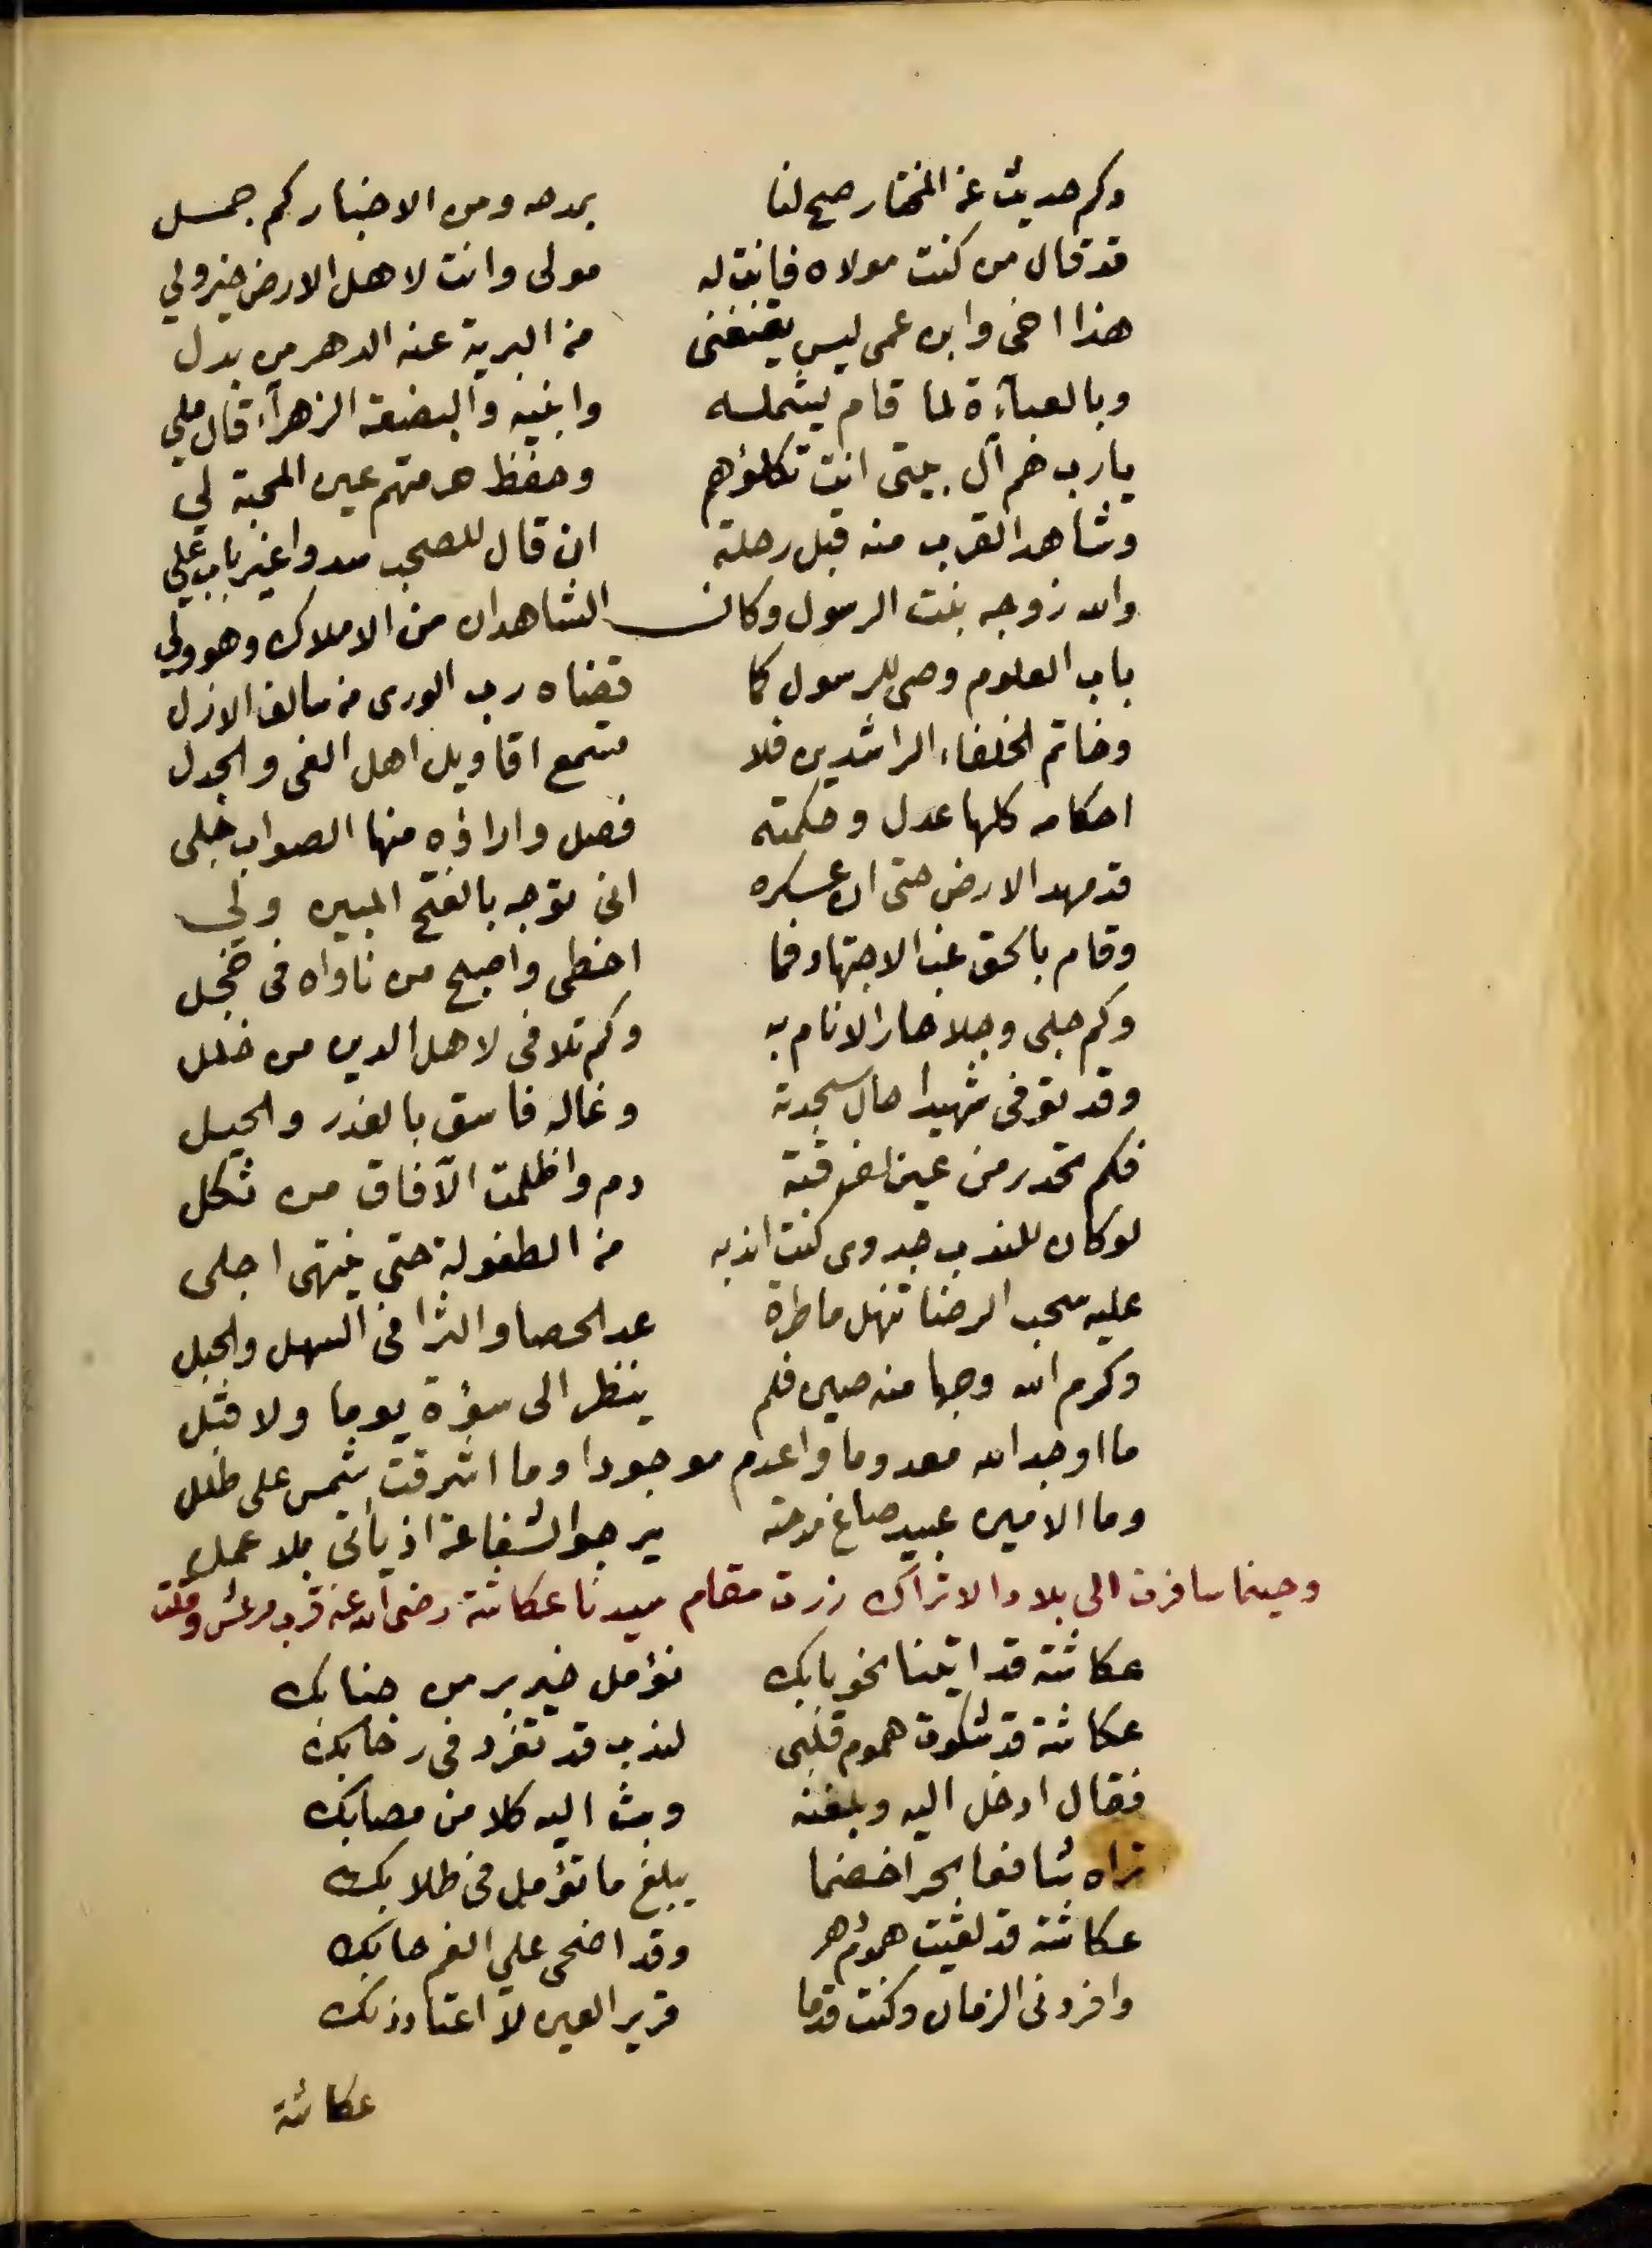 وكم حديث عن المختار صح لنا بمدحه ومن الاخبار كم جمل
قد قال من كنت مولاه فانت له مولى وانت لاهل الارض خير ولي
هذا اخي وابن عمي ليس يقنعني من البرية عنه الدهر من بدل
وبالعباءة لما قام يشمله وابنيه والبضعة الزهرآء قال ملي
يارب هم آل بيتي انت تكلؤهم وحفظ حرمتهم عين المحبة لي
وشاهد القرب منه قبل رحلته ان قال للصحب سدوا غير باب علي
والله زوجه بنت الرسول وكان الشاهدان من الاملاك وهو ولي
باب العلوم وصي للرسول كما قضاه رب الورى من سالف الازل
وخاتم الخلفاء الراشدين فلا تسمع اقاويل اهل الغي والجدل
احكامه كلها عدل وحكمته فصل واراؤه منها الصواب جلي
قد مهد الارض حتى ان عسكره انى توجه بالفتح المبين ولي
وقام بالحق غب الاجتهاد فما اخطى واصبح من ناواه في خجل
وكم جلى وجلا حار الانام به وكم تلافى لاهل الدين من خلل
وقد توفى شهيدا حال سجدته وغاله فاسق بالغدر والحيل
فكم تحدر من عين لفرقته دم واظلمت الآفاق من ثكل
لو كان للندب جدوى كنت اندبه من الطفولة حتى ينتهى اجلى
عليه سحب الرضا تنهل ماطرة عد الحصا والثرا في السهل والجبل
وكرم الله وجها منه صين فلم ينظر الى سؤة يوما ولا قبل
ما اوجد الله معدوما واعدم موجودا وما اشرقت شمس على طلل
وما الامين عبيد صاغ مدحته يرجو الشفاعة اذ يأتي بلا عمل
وحينما سافرت الى بلاد الاتراك زرت مقام سيدنا عكاشة رضى الله عنه قرب مرعش وقلت
عكاشة قد اتينا نحو بابك نؤمل خير بر من جنابك
عكاشة قد شكوت هموم قلبى لندب قد تفرد في رحابك
فقال ادخل اليه وبلغنه وبث اليه كلا من مصابك
تراه شافعا بحرا خضما يبلغ ما تؤمل في طلابك
عكاشة قد لقيت هموم دهر وقد اضحى علي الغم حابك
وافردني الزمان وكنت قدما قرير العين لا اعتاد ذلك
عكاشة